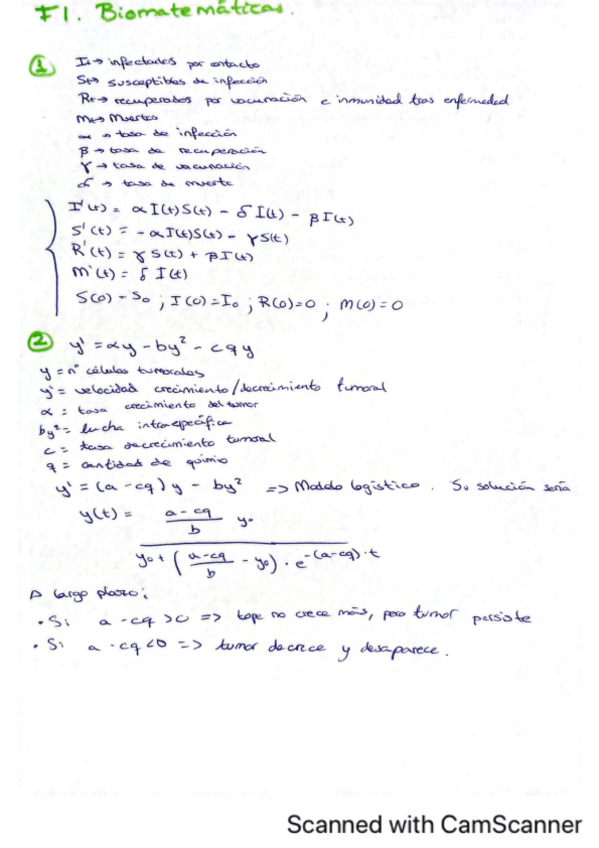 F1. Biomatemáticas.
1 I → infectados por contacto
S → susceptibles de infección
R → recuperados por vacunación e inmunidad tras enfermedad
M → Muertos
α → tasa de infección
β → tasa de recuperación
γ → tasa de vacunación
δ → tasa de muerte
I'(t) = α I(t)S(t) - δ I(t) - β I(t)
S'(t) = -α I(t)S(t) - γ S(t)
R'(t) = γ S(t) + β I(t)
M'(t) = δ I(t)
S(0) = S₀ ; I(0) = I₀ ; R(0) = 0 ; M(0) = 0
2 y' = αy - by² - cqy
y = nº células tumorales
y' = velocidad crecimiento/decrecimiento tumoral
α = tasa crecimiento del tumor
by² = lucha intraespecífica
c = tasa decrecimiento tumoral
q = cantidad de quimio
y' = (a - cq) y - by² => Modelo logístico. Su solución sería
y(t) = \frac{\frac{a - cq}{b} y₀}{y₀ + (\frac{a - cq}{b} - y₀) · e^{-(a-cq)·t}}
A largo plazo:
• Si a - cq > 0 => tope no crece más, pero tumor persiste
• Si a - cq < 0 => tumor decrece y desaparece.
Scanned with CamScanner